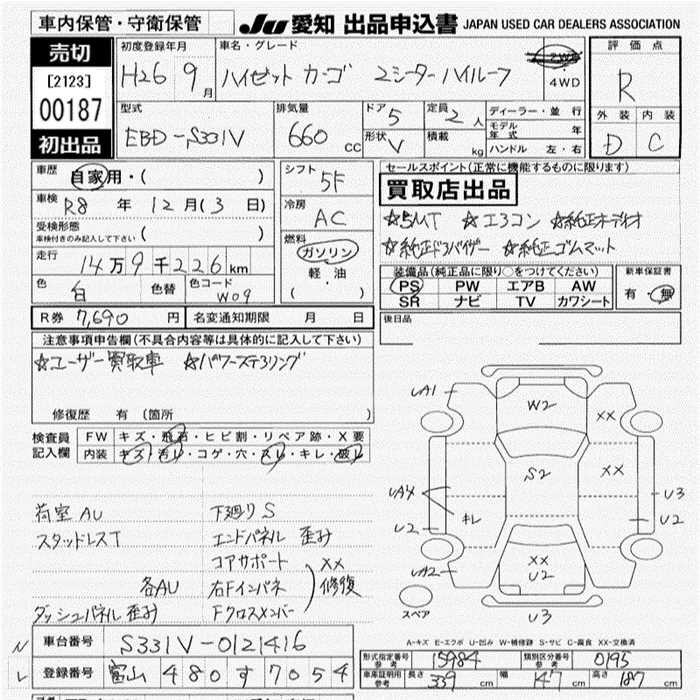 車内保管・守衛保管
JU 愛知 出品申込書 JAPAN USED CAR DEALERS ASSOCIATION
売切
[2123]
00187
初出品
初度登録年月
H26 9月
車名・グレード
ハイゼット カーゴ 2シーターハイルーフ
2WD
4WD
評価点
R
外装 内装
D C
型式
EBD-S331V
排気量
660 cc
ドア 5
形状 V
定員 2人
積載 kg
ディーラー・並行
モデル年式 年
ハンドル 左・右
車歴 自家用・( )
車検 R8年12月(3日)
受検形態
車検付きのみ記入して下さい ( )
走行 14万9千226km
色 白 色替 色コード W09
シフト 5F
冷房 AC
燃料
ガソリン
軽・油
( )
セールスポイント(正常に機能するものに限ります)
買取店出品
☆5MT ☆エアコン ☆純正オーディオ
☆純正ドアバイザー ☆純正ゴムマット
装備品(純正品に限り○をつけてください)
PS PW エアB AW
SR ナビ TV カワシート
新車保証書
有・無
R券 7,690円 名変通知期限 月 日
後日品
注意事項申告欄(不具合内容等は具体的に記入して下さい)
☆ユーザー買取車 ☆パワーステアリング
修復歴 有 (箇所 )
検査員記入欄
FW キズ・飛石・ヒビ割・リペア跡・X要
内装 キズ・汚れ・コゲ・穴・スレ・キレ・破レ
荷室AU
スタッドレスT
各AU
ダッシュパネル歪み
下廻りS
エンドパネル 歪み
コアサポート XX
右Fインパネ 修復
Fクロスメンバー
UA1
W2
XX
S2
XX
UA4
U2
キレ
U3
U2
XX
U2
UA2
スペア
U3
A-キズ E-エクボ U-凹み W-補修跡 S-サビ C-腐食 XX-交換済
N
車台番号 S331V-0121416
L
登録番号 富山 480す7054
型式指定番号 参考 15984 類別区分番号 参考 0195
車庫証明用 参考 長さ 339cm 幅 147cm 高さ 187cm